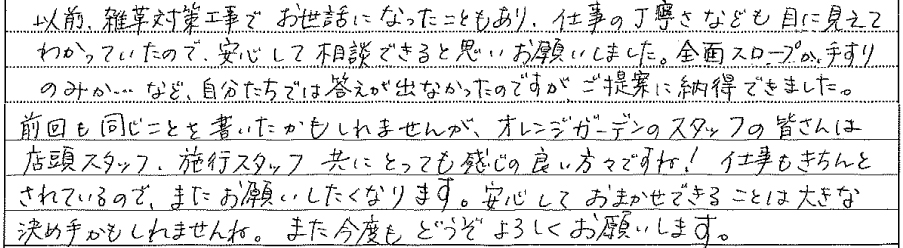 以前、雑草対策工事で お世話になったこともあり、仕事の丁寧さなども 目に見えて
わかっていたので、安心して 相談できると思い お願いしました。全面スロープか、手すり
のみか…など、自分たちでは答えが出なかったのですが、ご提案に納得できました。
前回も同じことを書いたかもしれませんが、オレンジガーデンのスタッフの皆さんは
店頭スタッフ、施行スタッフ 共にとっても感じの良い方々ですね! 仕事もきちんと
されているので、またお願いしたくなります。安心して おまかせできることは大きな
決め手かもしれませんね。また今度も どうぞ よろしくお願いします。